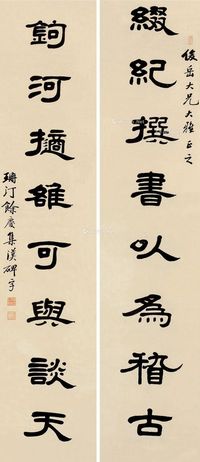 俊岳大兄大雅正之
綴紀撰書以為稽古
鉤河摘雒可與談天
珊汀餘慶集漢碑字